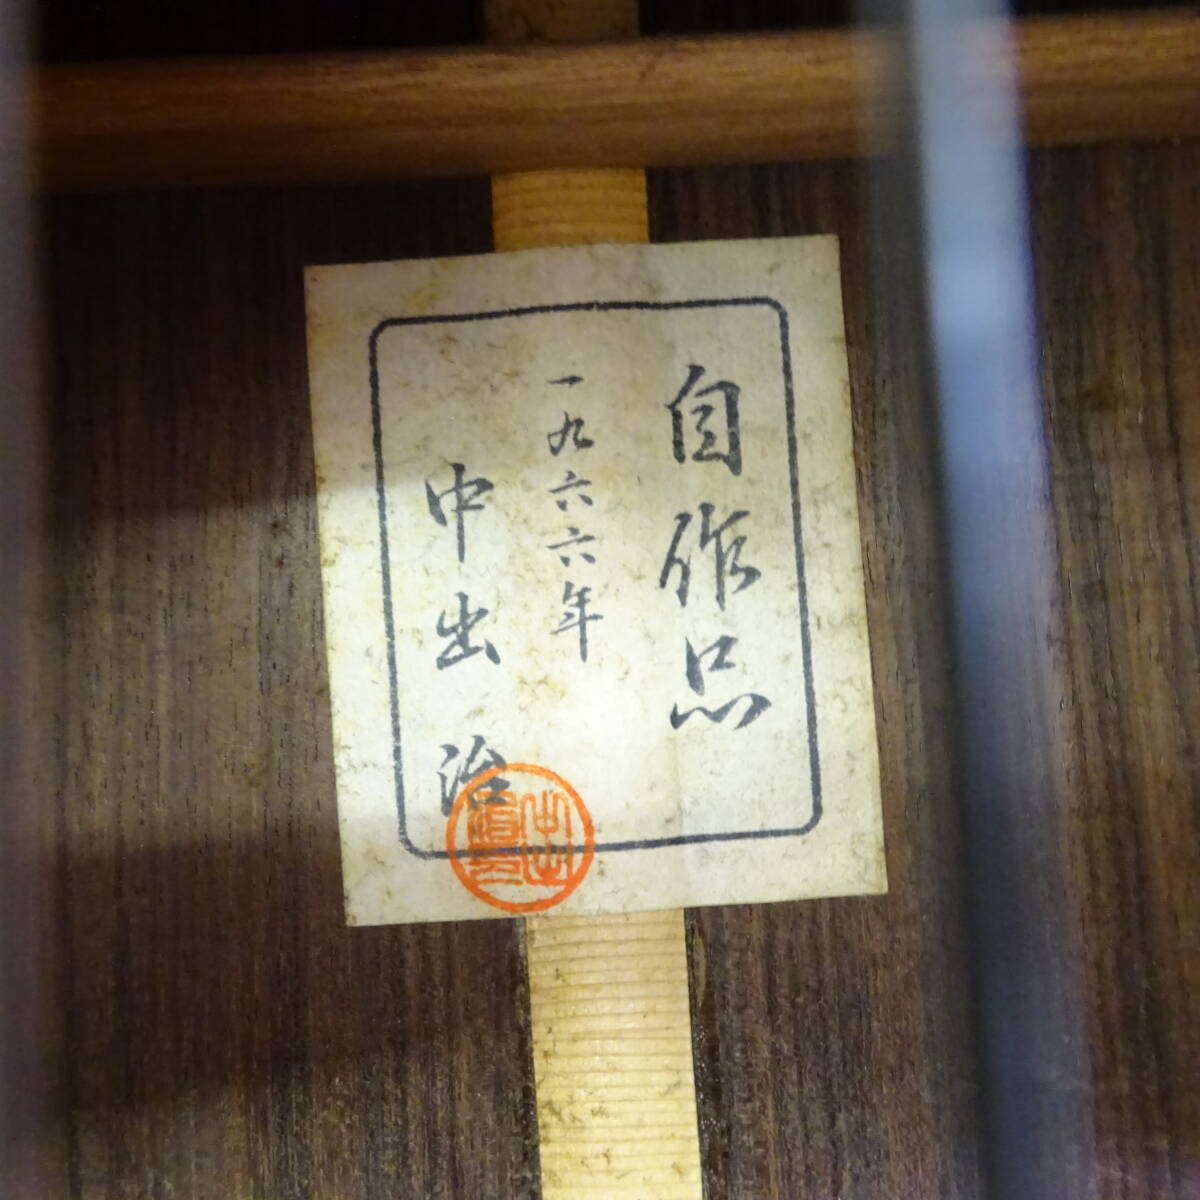 自作品
一九六六年
中出治